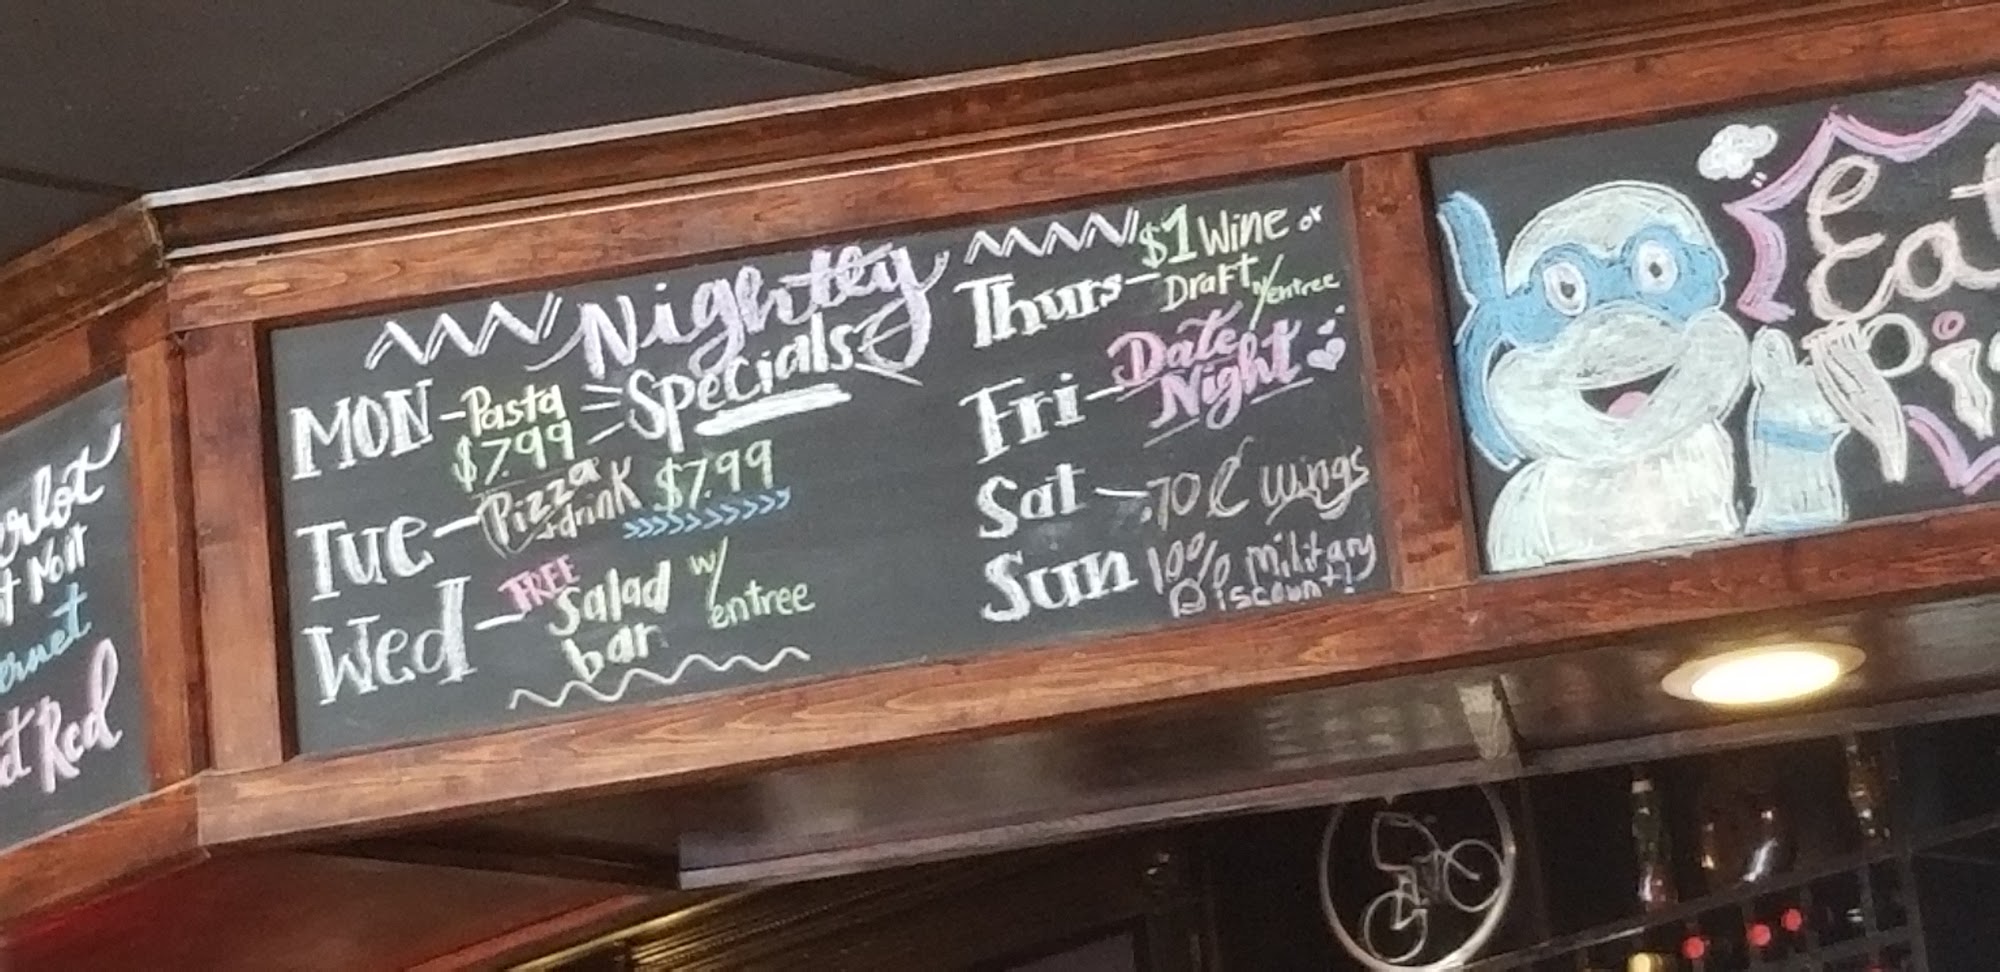 Nightly
Specials
MON - Pasta
$7.99
Tue - Pizza
& drink $7.99
Wed - FREE
Salad
bar
w/
entree
Thurs - $1 Wine or
Draft w/entree
Fri - Date
Night
Sat - .70¢ wings
Sun 10% military
Discount!
Red
Eat